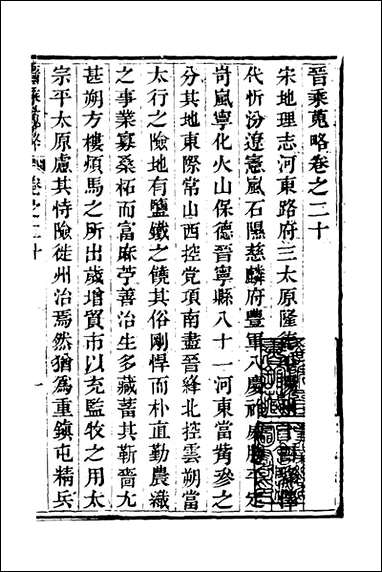 晉乘蒐略卷之二十
宋地理志河東路府三太原隆
代忻汾遼憲嵐石隰慈麟府豐軍八慶祚威勝平定
岢嵐寧化火山保德晉寧縣八十一河東當觜參之
分其地東際常山西控党項南盡晉絳北控雲朔當
太行之險地有鹽鐵之饒其俗剛悍而朴直勤農織
之事業寡桑柘而富麻苧善治生多藏蓄其靳嗇尤
甚朔方樓煩馬之所出歲增貿市以充監牧之用太
宗平太原慮其恃險徙州治焉然猶爲重鎮屯精兵
卷之二十
一